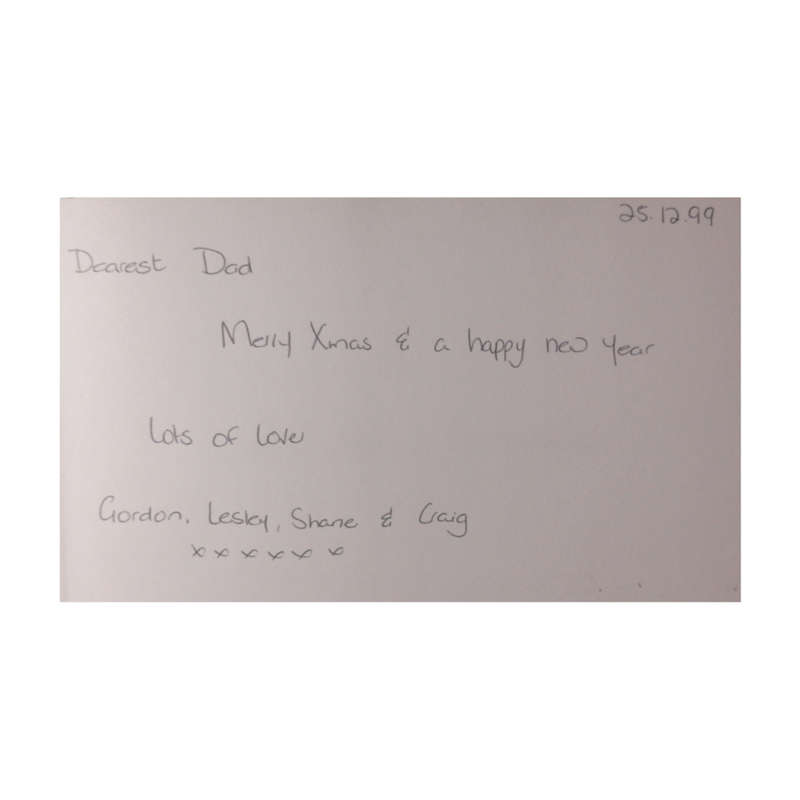 25.12.99
Dearest Dad
Merry Xmas & a happy new year
Lots of love
Gordon, Lesley, Shane & Craig
x x x x x x